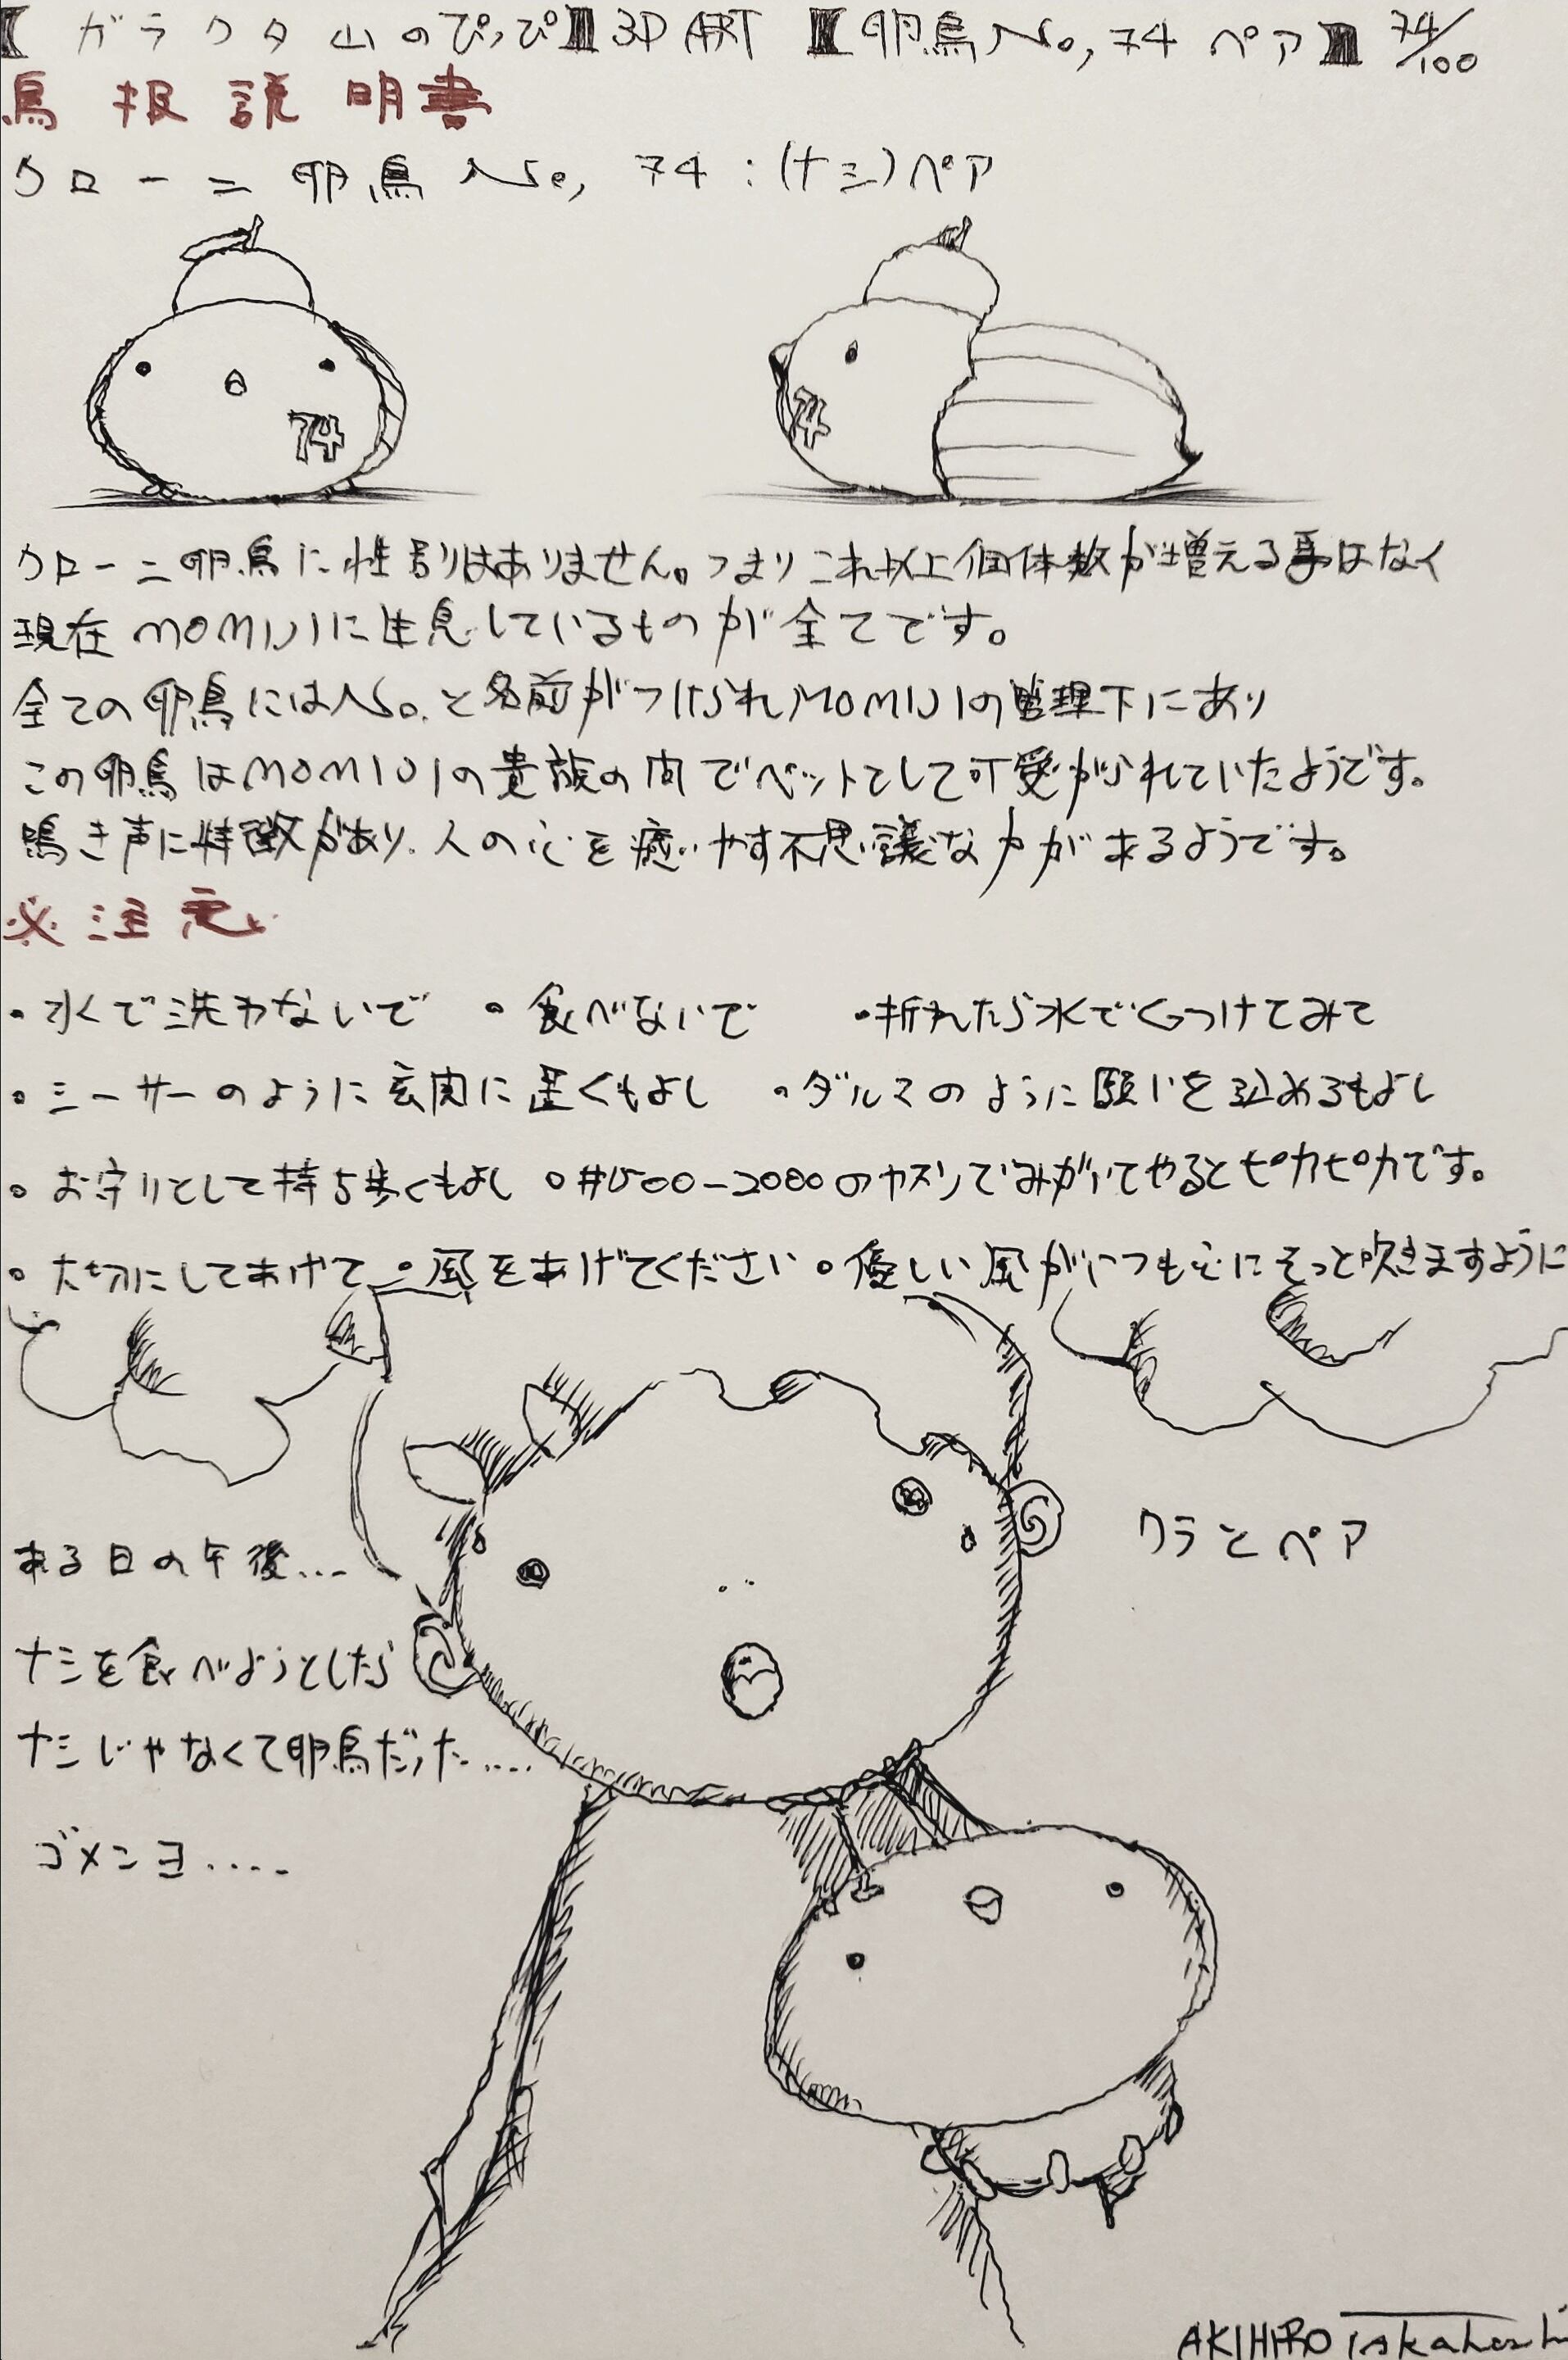 【ガラクタ山のぴっぴ】3D ART 【卵鳥No,74 ペア】 74/100
鳥扱説明書
クローニ卵鳥No, 74:(ナシ)ペア
74
74
クローニ卵鳥に性別はありません。つまりこれ以上個体数が増える事はなく
現在MOMIJIに生息しているものが全てです。
全ての卵鳥にはNo.と名前がつけられMOMIJIの監理下にあり
この卵鳥はMOMIJIの貴族の間でペットとして可愛がられていたようです。
鳴き声に特徴があり、人の心を癒やす不思議な力があるようです。
※注意
・水で洗わないで ・食べないで ・折れたら水でくっつけてみて
・シーサーのように玄関に置くもよし ・ダルマのように願いを込めるもよし
・お守りとして持ち歩くもよし ・#1500-2000のヤスリでみがいてやるとピカピカです。
・大切にしてあげて ・風をあげてください ・優しい風がいつも心にそっと吹きますように
ある日の午後...
クラとペア
ナシを食べようとしたら
ナシじゃなくて卵鳥だった....
ゴメンヨ....
AKIHIRO Takahashi